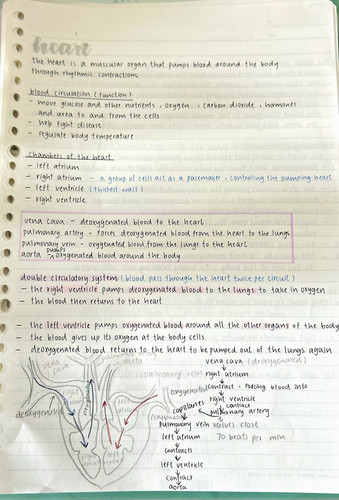 heart
the heart is a muscular organ that pumps blood around the body
through rhythmic contractions
blood circulation (function)
- move glucose and other nutrients, oxygen, carbon dioxide, hormones
and urea to and from the cells
- help fight disease
- regulate body temperature
chambers of the heart
- left atrium
- right atrium - a group of cells act as a pacemaker, controlling the pumping heart
- left ventricle (thickest wall)
- right ventricle
vena cava - deoxygenated blood to the heart
pulmonary artery - forces deoxygenated blood from the heart to the lungs
pulmonary vein - oxygenated blood from the lungs to the heart
aorta pumps oxygenated blood around the body
double circulatory system (blood pass through the heart twice per circuit)
- the right ventricle pumps deoxygenated blood to the lungs to take in oxygen
- the blood then returns to the heart
- the left ventricle pumps oxygenated blood around all the other organs of the body
- the blood gives up its oxygen at the body cells
- deoxygenated blood returns to the heart to be pumped out of the lungs again
vena cava
aorta
pulmonary vein
oxygenated
deoxygenated
left atrium
right ventricle
left ventricle
vena cava (deoxygenated)
right atrium
contract - forcing blood into
right ventricle
contract
capillaries
pulmonary artery
pulmonary vein
valves close
left atrium
70 beats per min
contracts
left ventricle
contract
aorta